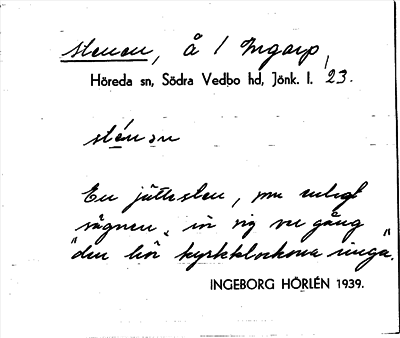 Stenen, å / Ingarp,
Höreda sn, Södra Vedbo hd, Jönk. l. 23.
sté̀n ən
En jättesten, som enligt
sägnen „ rör sig en gång
"den hör kyrkklockorna ringa."
INGEBORG HÖRLÉN 1939.